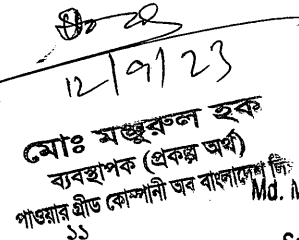 12/9/23
মোঃ মঞ্জুরুল হক
ব্যবস্থাপক (প্রকল্প অর্থ)
পাওয়ার গ্রীড কোম্পানী অব বাংলাদেশ লিঃ
Md.
১১